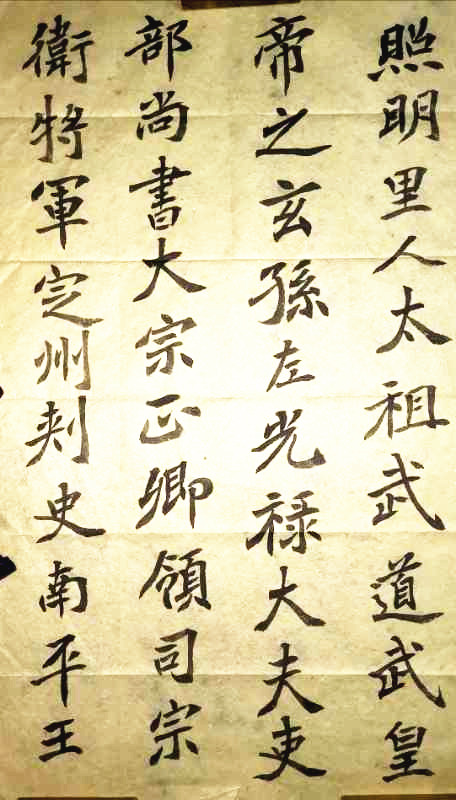 照明里人太祖武道武皇
帝之玄孫左光禄大夫吏
部尚書大宗正卿領司宗
衛将軍定州刾史南平王